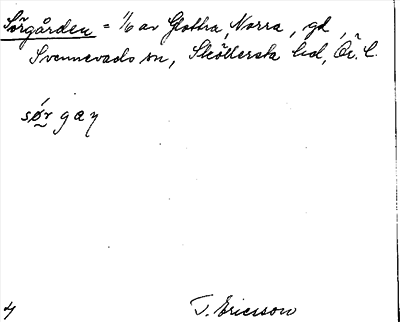 Sörgården = 1/6 av Glottra, Norra, gd,
Svennevads sn, Sköllersta hd, Ör. l.
sø̄r gaɳ
4
T. Ericsson